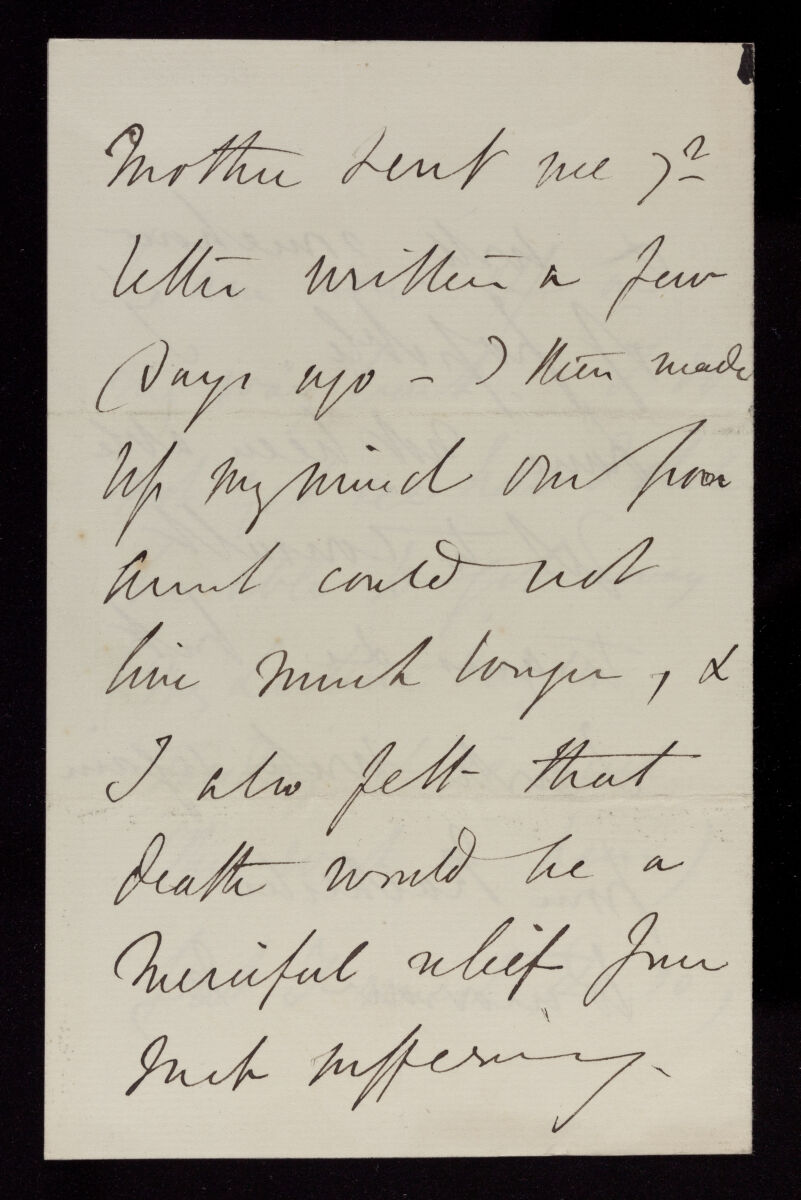 Mother sent me yr
letter written a few
days ago - I then made
up my mind our poor
aunt could not
live much longer, &
I also felt that
death would be a
merciful relief from
such suffering.